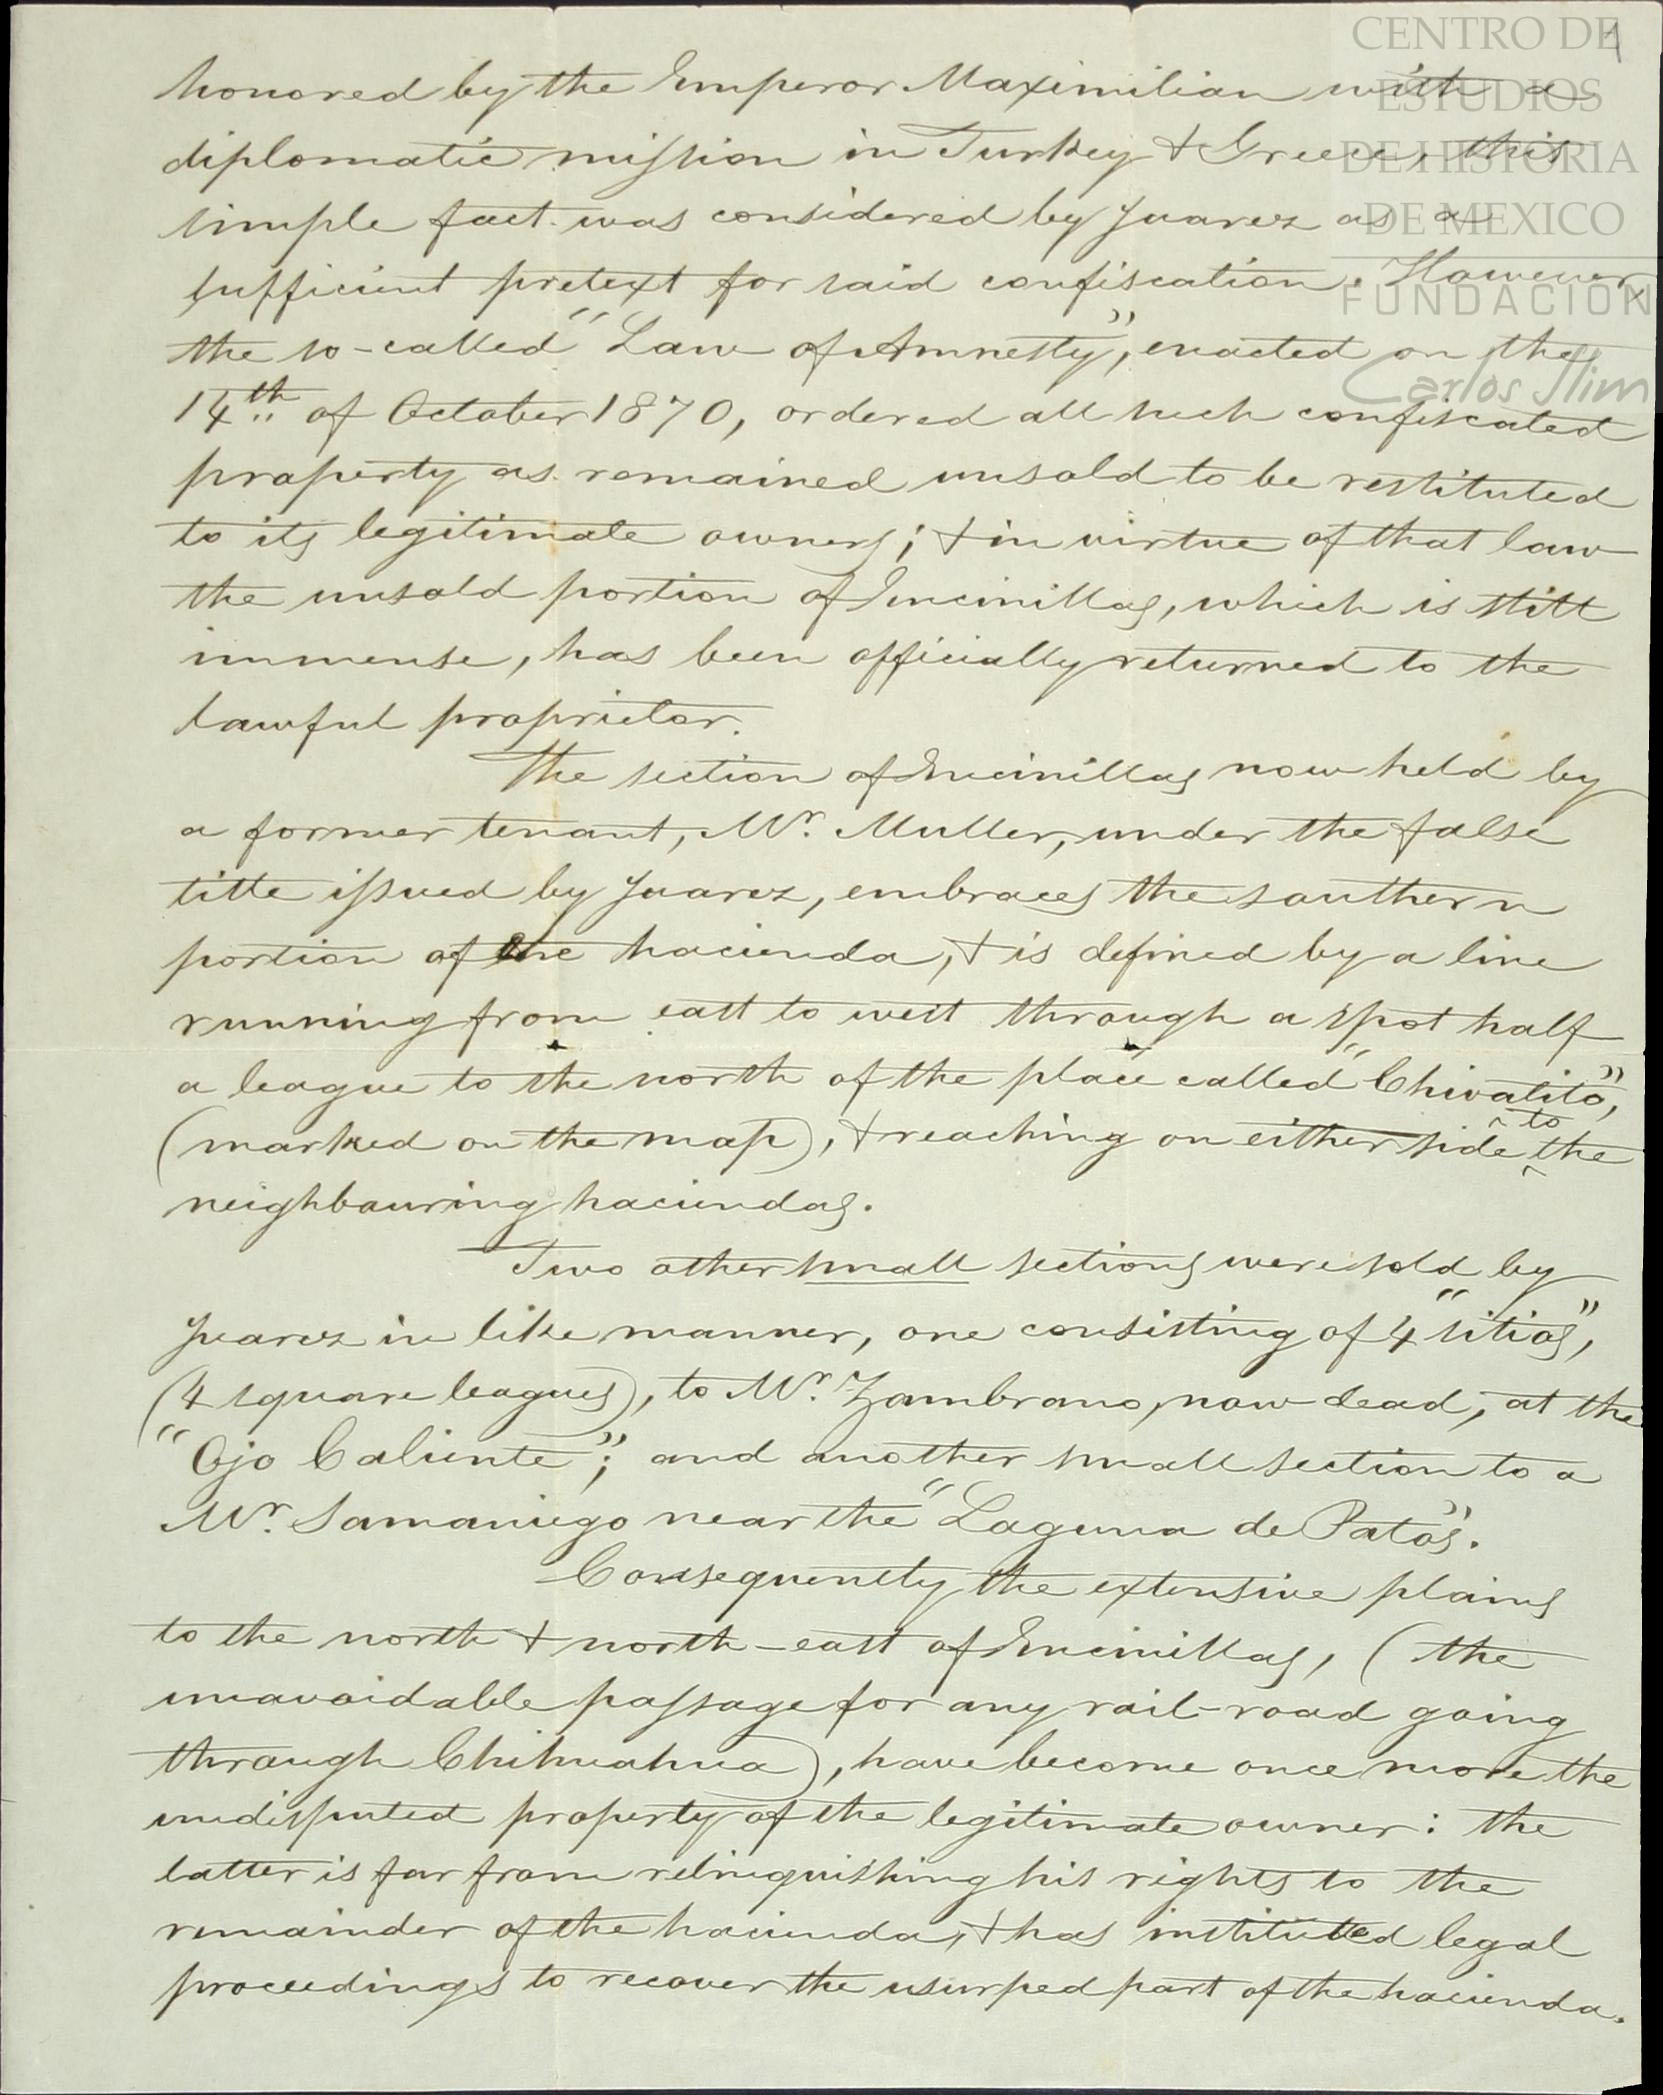 1
CENTRO DE
ESTUDIOS
DE HISTORIA
DE MEXICO
FUNDACION
Carlos Slim
honored by the Emperor Maximilian with a
diplomatic mission in Turkey & Greece, this
simple fact was considered by Juarez as a
sufficient pretext for said confiscation. However,
the so-called "Law of Amnesty", enacted on the
14th of October 1870, ordered all such confiscated
property as remained unsold to be restituted
to its legitimate owners; & in virtue of that law
the unsold portion of Encinillas, which is still
immense, has been officially returned to the
lawful proprietor.
The section of Encinillas now held by
a former tenant, Mr. Muller, under the false
title issued by Juarez, embraces the southern
portion of the hacienda, & is defined by a line
running from east to west through a spot half
a league to the north of the place called "Chivatito",
(marked on the map), & reaching on either side to the
neighbouring haciendas.
Two other small sections were sold by
Juarez in like manner, one consisting of 4 "sitios",
(4 square leagues), to Mr. Zambrano, now dead, at the
"Ojo Caliente"; and another small section to a
Mr. Samaniego near the "Laguna de Patos".
Consequently the extensive plains
to the north & north-east of Encinillas, (the
unavoidable passage for any rail-road going
through Chihuahua), have become once more the
undisputed property of the legitimate owner: the
latter is far from relinquishing his rights to the
remainder of the hacienda, & has instituted legal
proceedings to recover the usurped part of the hacienda.